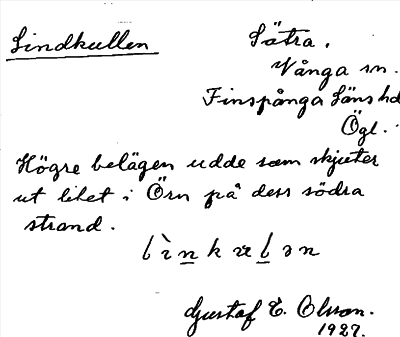 Lindkullen
Sätra.
Vånga sn.
Finspånga läns hd
Ögl.
Högre belägen udde som skjuter
ut litet i Örn på dess södra
strand.
Gustaf E. Olsson.
1927.